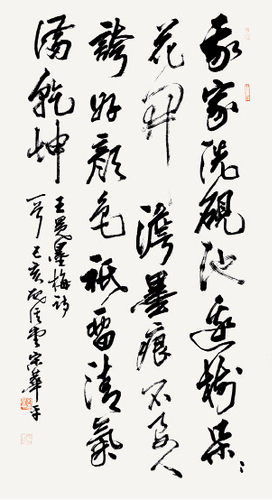 我家洗硯池邊樹朵々
花開澹墨痕不要人
誇好顏色祇留清氣
滿乾坤
王冕墨梅詩
一首己亥秋宋華平